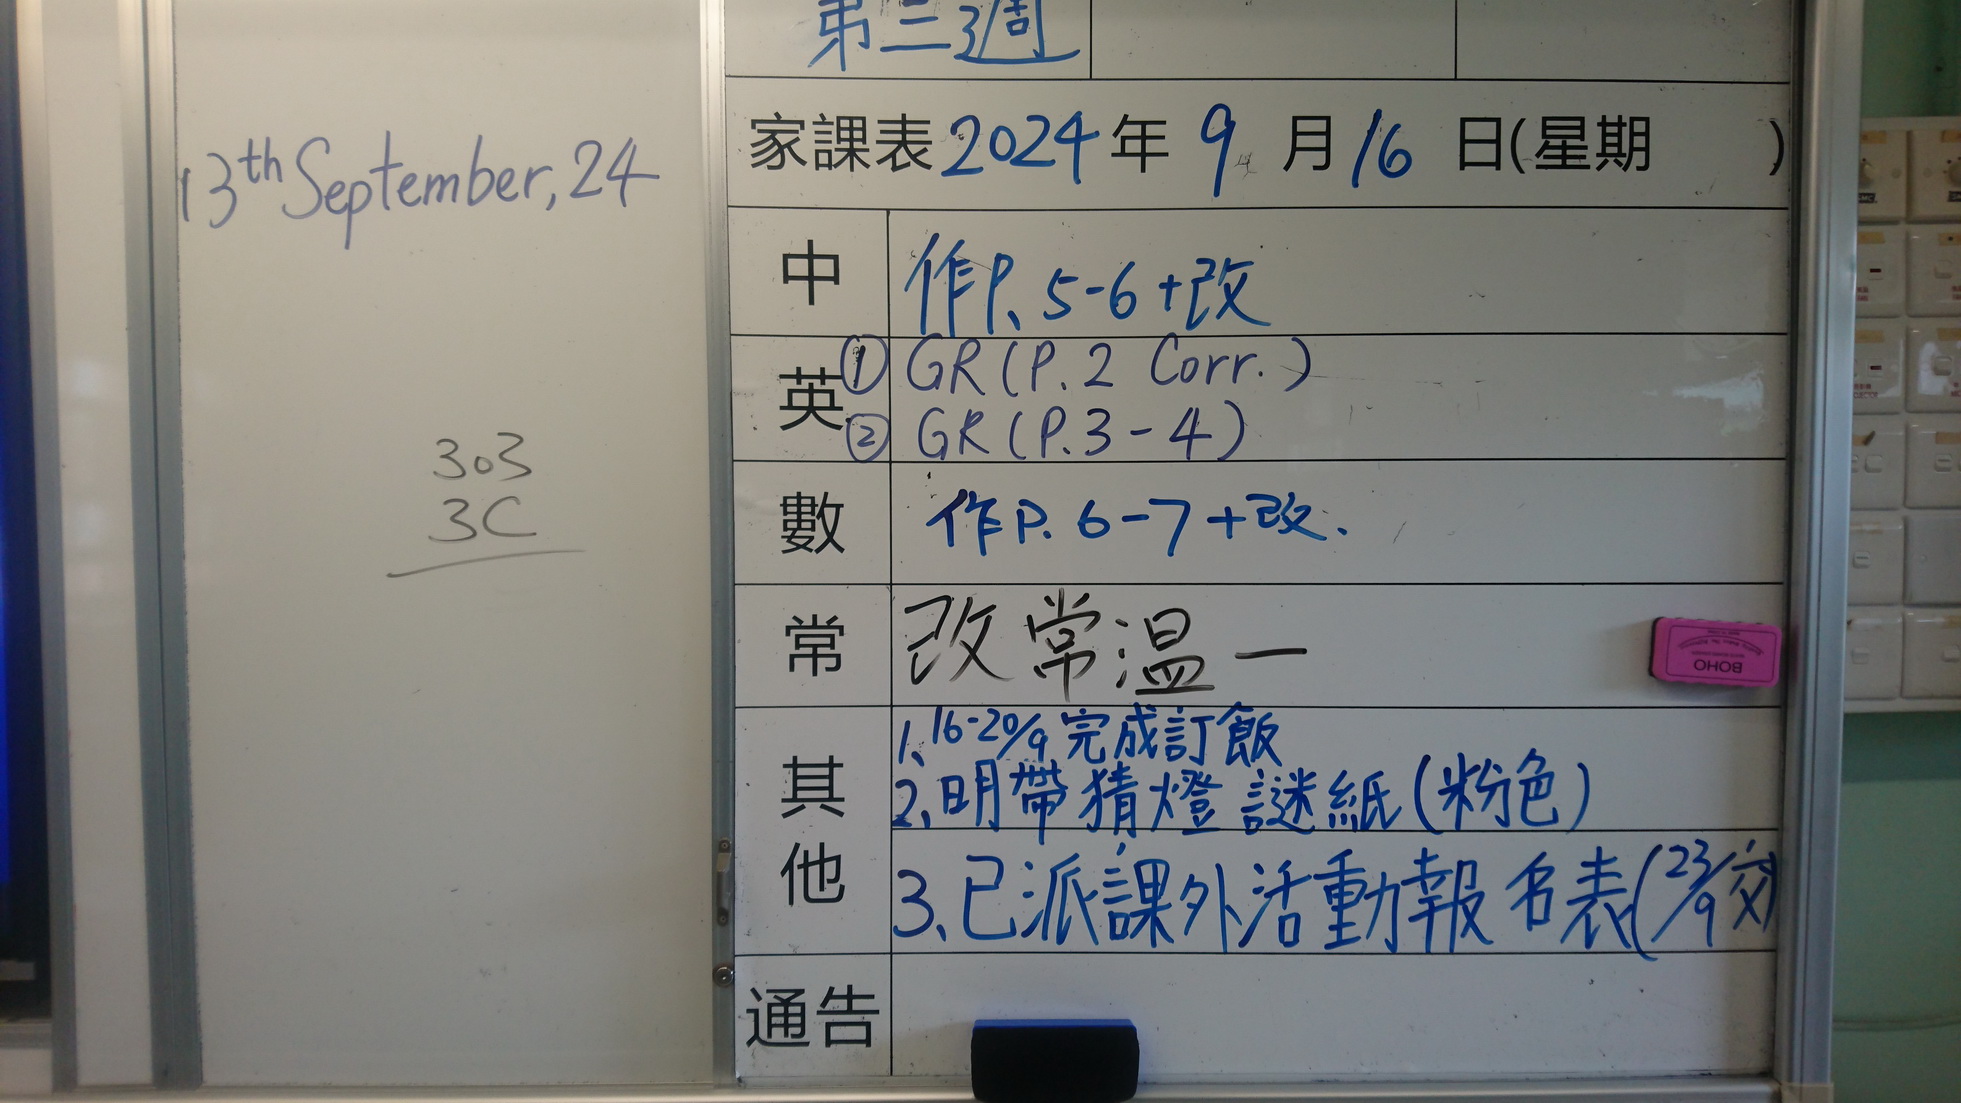 13th September, 24
303
3C
第三週
家課表 2024年 9月16日(星期 )
中 作P. 5-6 +改
英 ① GR (P.2 Corr.)
② GR (P.3-4)
數 作P. 6-7 +改.
常 改常温一
其他 1. 16-20/9 完成訂飯
2. 明帶猜燈謎紙(粉色)
3. 已派課外活動報名表(23/9交)
通告
BOHO